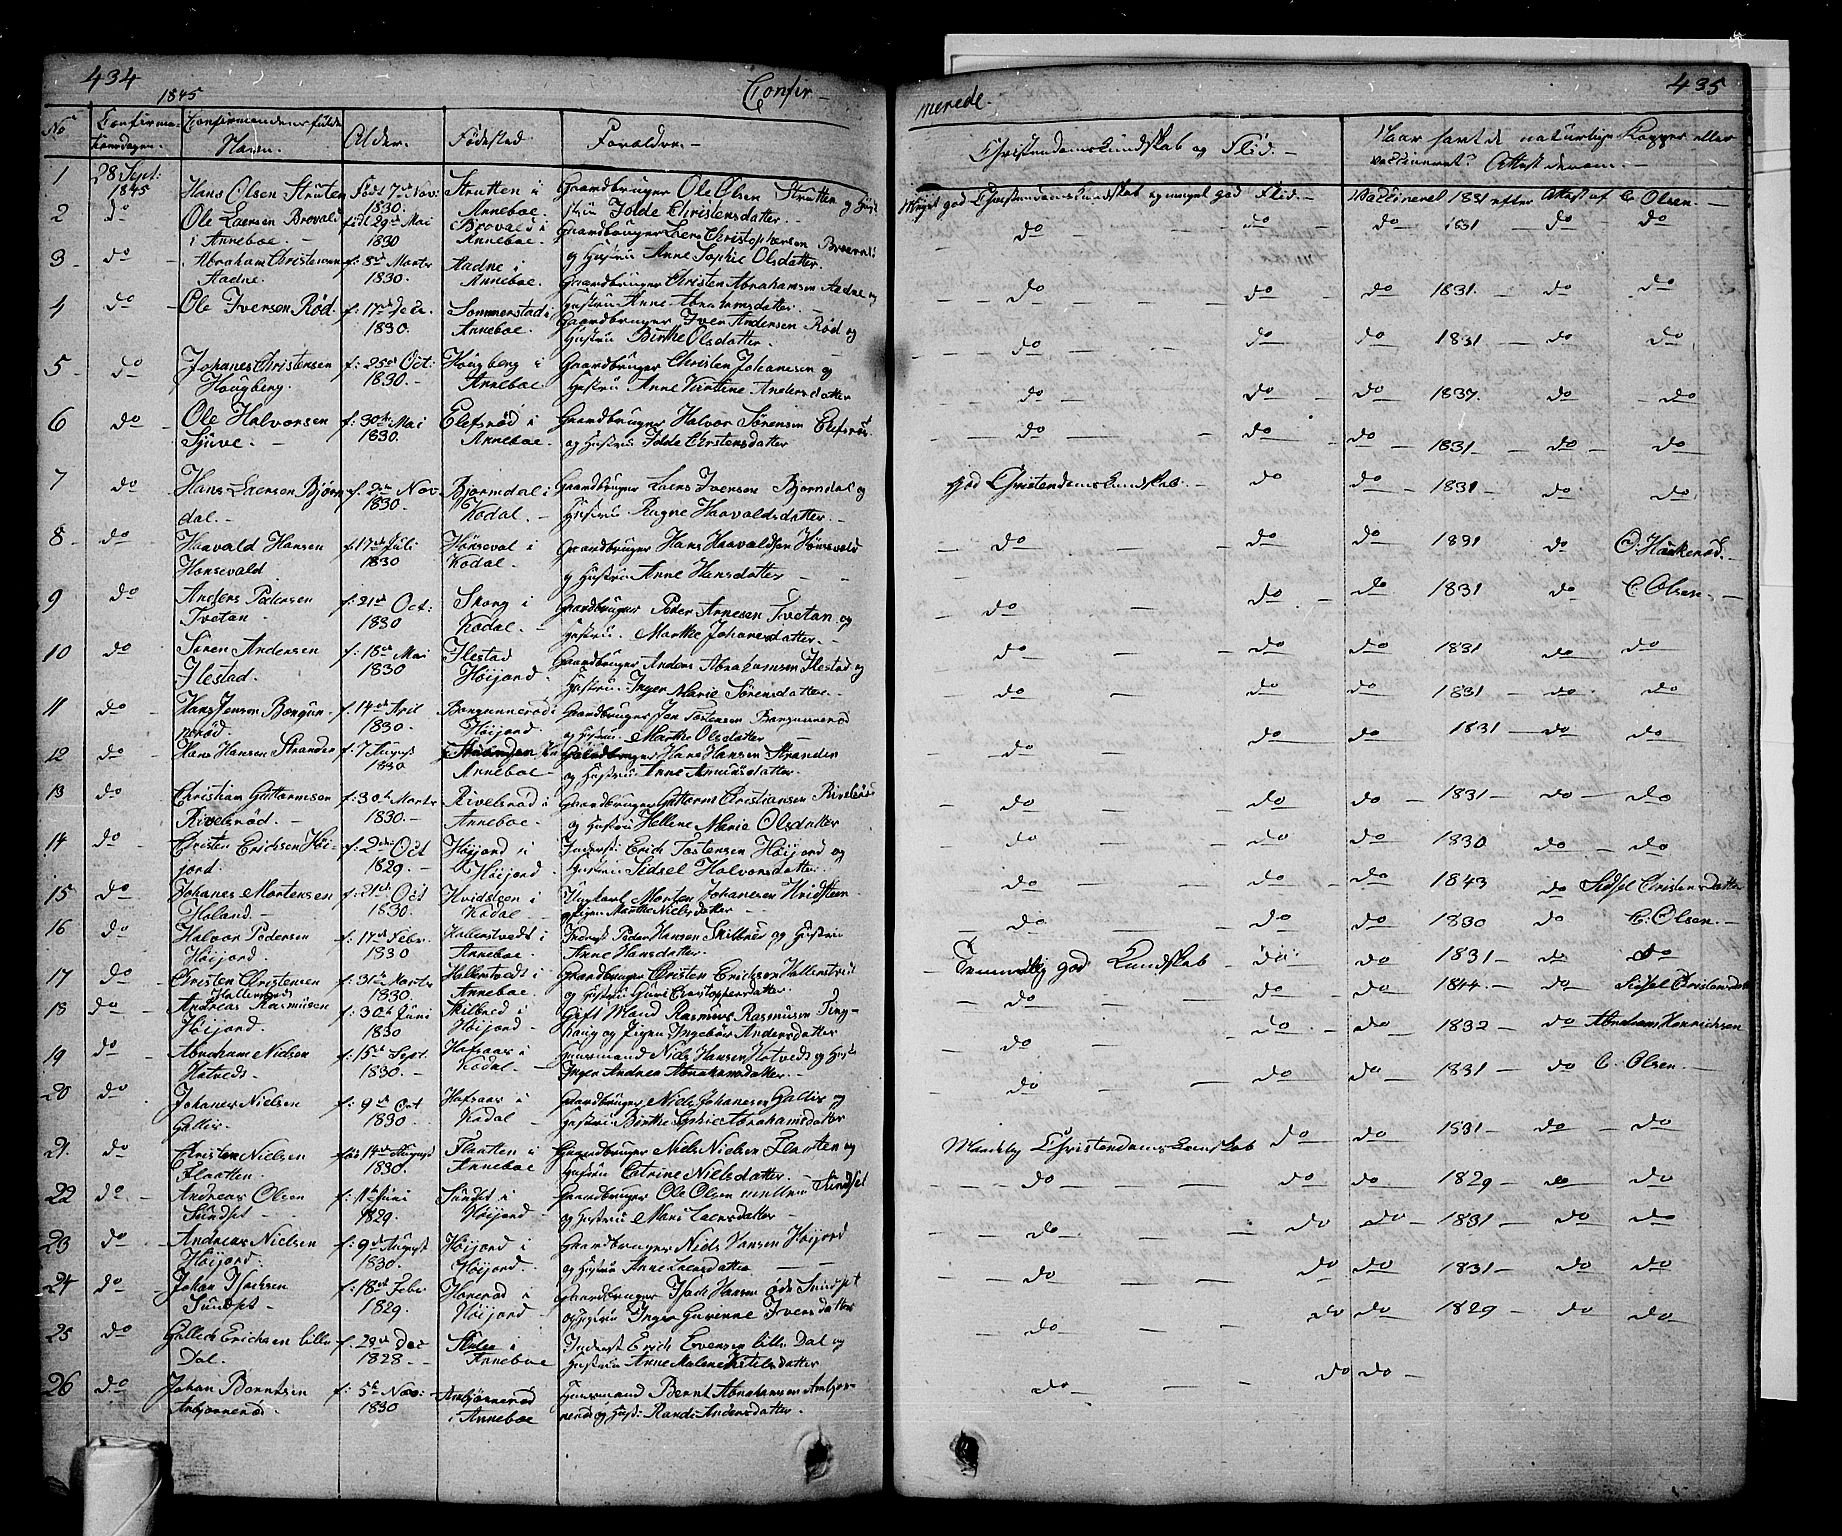 434
1845
Confir-
No
Confirma-
tionsdagen.
Confirmandens fulde
Navn.
Alder.
Fødestad
Forældre.
1
28 Sept:
1845
Hans Olsen Strutten
Født 7de Nov:
1830.
Strutten i
Anneboe.
Gaardbruger Ole Olsen Strutten og Hust
Iolde Christensdatter.
2
do
Ole Laersen Brovald
i Anneboe. -
født 29de Mai
1830
Brovald i
Anneboe.
Gaardbruger Laers Christophersen
og Hustrü Anne Sophie Olsdatter.
3
do
Abraham Christensen
Aadne.
f: 8de Marts
1830.
Aadne i
Anneboe.
Gaardbruger Christen Abrahamsen Aadne og
Hustrü Anne Abrahamsdatter.
4
do
Ole Iversen Rød.
f: 17de
1830.
Sommerstad i
Anneboe.
Gaardbruger Iver Andersen Rød og
Hustrü Birthe Olsdatter.
5
do
Johanes Christensen
Hougberg.
f: 25de Oct:
1830.
Hougberg i
Anneboe.
Gaardbruger Christen Johanesen og
Hustrü Anne Andersdatter
6
do
Ole Halvorsen
Syüve. -
f: 30te Mai
1830.
Elefsrød i
Anneboe. -
Gaardbruger Halvor Sørensen Elefsrød
og Hustrü Iolde Christensdatter
7
do
Hans Laersen Bjørn
dal. -
f. 2de Nov.
1830.
Bjørndal i
Kodal. -
Gaardbruger Laers Iversen Bjørndal og
Hustrü Ragne Haavaldsdatter. -
8
do
Haavald Hansen
Honsevald
f. 17de Juli
1830
Hønseval i
Kodal. -
Gaardbruger Hans Haavaldsen Hønsvald
og Hustrü Anne Hansdatter -
9
do
Anders Pedersen
Tvetan. -
f: 21de Oct:
1830
Skorg i
Kodal. -
Gaardbruger Peder Arnesen Tvetan og
Hustrü. Marthe Johanesdatter. -
10
do
Søren Andersen
Ilestad.
f: 18de Mai
1830
Ilestad
Høijord.
Gaardbruger Anders Abrahamsen Ilestad og
Hustrü Inger Marie Sørensdatter. -
11
do
Hans Jensen Borgun-
nerød.
f: 14de April
1830.
Borgunnerød i
Høijord.
Gaardbruger Jan Tostensen Borgunnerød
og Hustrü Marthe Olsdatter
12
do
Hans Hansen Strander
f: 7 Augüst
1830
Anneboe -
Gaardbruger Hans Hansen Strander
og Hustrü Anne Amünsdatter.
13
do
Christian Guttormsen
Rivelsrød. -
f: 30te Marts
1830. -
Rivelsrød i
Anneboe. -
Gaardbruger Guttorm Christiansen Rivelsrød
og Hustrü Hellene Marie Olsdatter
14
do
Christen Erichsen Høi-
jord.
f: 9de Oct
1829. -
Høijord i
Høijord.
Inderst: Erich Tostensen Høijord og
Hustrü Sidsel Halvorsdatter.
15
do
Johanes Mortensen
Holand. -
f: 21de Oct
1830.
Hvidsteen i
Kodal -
Ungkarl Morten Johanesen Hvidsteen
Pigen Marthe Nielsdatter -
16
do
Halvor Pedersen
Høijord.
f: 17de Febr.
1830
Hallerstvedt i
Anneboe. -
Inderst Peder Hansen Skilbred og Hustrü
Anne Hansdatter.
17
do
Christen Christensen
Hallerstvedt
f: 31te Marts
1830.
Hallerstvedt i
Anneboe.
Gaardbruger Christen Erichsen Hallerstvedt
og Hustrü Guri Christophersdatter
18
do
Andreas Rasmüsen
Høijord.
f: 30te Juni
1830
Skilbred i
Høijord. -
Gift Mand Rasmüs Rasmüsen Ting-
houg og Pigen Ingebor Andersdatter
19
do
Abraham Nielsen
Hotveds. -
f: 15de Sept.
1830. -
Hafsaas i
Kodal. -
Huusmand Niels Hansen Hotveds og Hust:
Inger Andrea Abrahamsdatter.
20
do
Johanes Nielsen
Gallis. -
f: 9de Oct
1830.
Hafsaas i
Kodal
Gaardbruger Niels Johanesen Gallis og
Hustrü Birthe Sophie Abrahamsdatter
21.
do
Christen Nielsen
Flaatten.
fød 14de Augüst
1830.
Flaatten i
Anneboe.
Gaardbruger Niels Nielsen Flaatten og
Hustrü Catrine Nielsdatter. -
22
do
Andreas Olsen
Sündset
f. 1te Juni
1829.
Sündset i
Høijord -
Gaardbruger Ole Olsen mellem Sündset
og Hustrü Mari Laersdatter -
23
do
Andreas Nielsen
Høijord.
f: 9de Augüst
1830. -
Høijord i
Høijord.
Gaardbruger Niels Hansen Høijord
og Hustrü Anne Laersdatter
24
do
Johan Isachsen
Sündset -
f: 18de Febr
1829.
Honerød i
Høijord. -
Gaardbruger Isach Hansen øde Sündset
og Hustrü Inger Gurinne Iversdatter
25
do
Erichsen lille
Dal.
f. 29de Dec
1828. -
i
Anneboe
Inderst Erich Evensen lille Dal og
Hustrü Anne Malene
26
do
Johan Berntsen
Anbjørnerød
f: 5te Nov:
1830
Anbjørnerød
i Anneboe
Huusmand Bernt Abrahamsen Anbjør-
nerød og Hust: Randi Andersdatter.
merede.
435
Christendomskundskab og Flid. -
Haar havt de natürlige Kopper eller
vaccineret? Attest derom. -
Meget god Christendomskundskab og meget god Flid. -
Vaccineret 1831 efter Attest af C. Olsen. -
do do do 1831 do do
do do do 1831 do do
do do do 1831 - do do
do do do 1837. do do
do do do 1831 - do do
god Christendomskundskab. - do do 1831 - do do
do do do 1831 do O. Haukerød. -
do do do 1831 do C. Olsen. -
do do do 1831 do do
do do do 1831 - do do
do do do 1831 - do do
do do do 1831 - do do
do do do 1830 do do
do do do 1843 do Sidsel Christensdatter
do do do 1830 do C. Olsen. -
Temmelig god Kundskab - do do 1831 - do do
do do do 1844. - do Sidsel Christensdatter
do do do 1832 - do Abraham Henrichsen
do do do 1831 - do C. Olsen. -
Maadelig Christendomskundskab do do 1831 do do
do do do 1829 - do do
do do do 1831 - do do
do do do 1831 - do do
do do do 1829 - do do
do do do